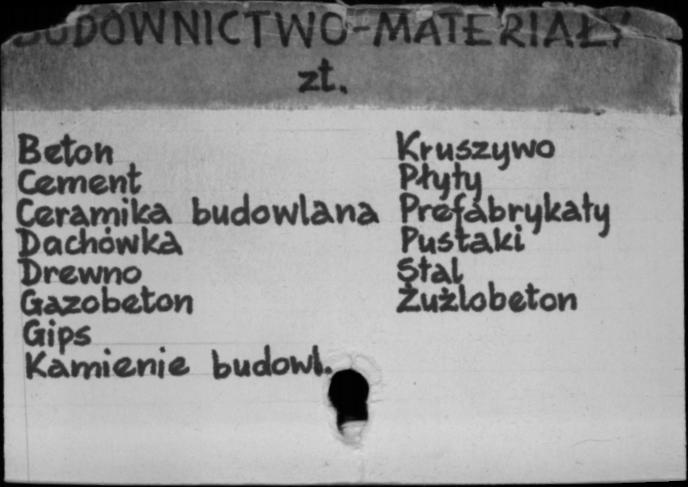 BUDOWNICTWO-MATERIAŁY
zt.
Beton
Cement
Ceramika budowlana
Dachówka
Drewno
Gazobeton
Gips
Kamienie budowl.
Kruszywo
Płyty
Prefabrykaty
Pustaki
Stal
Żużlobeton